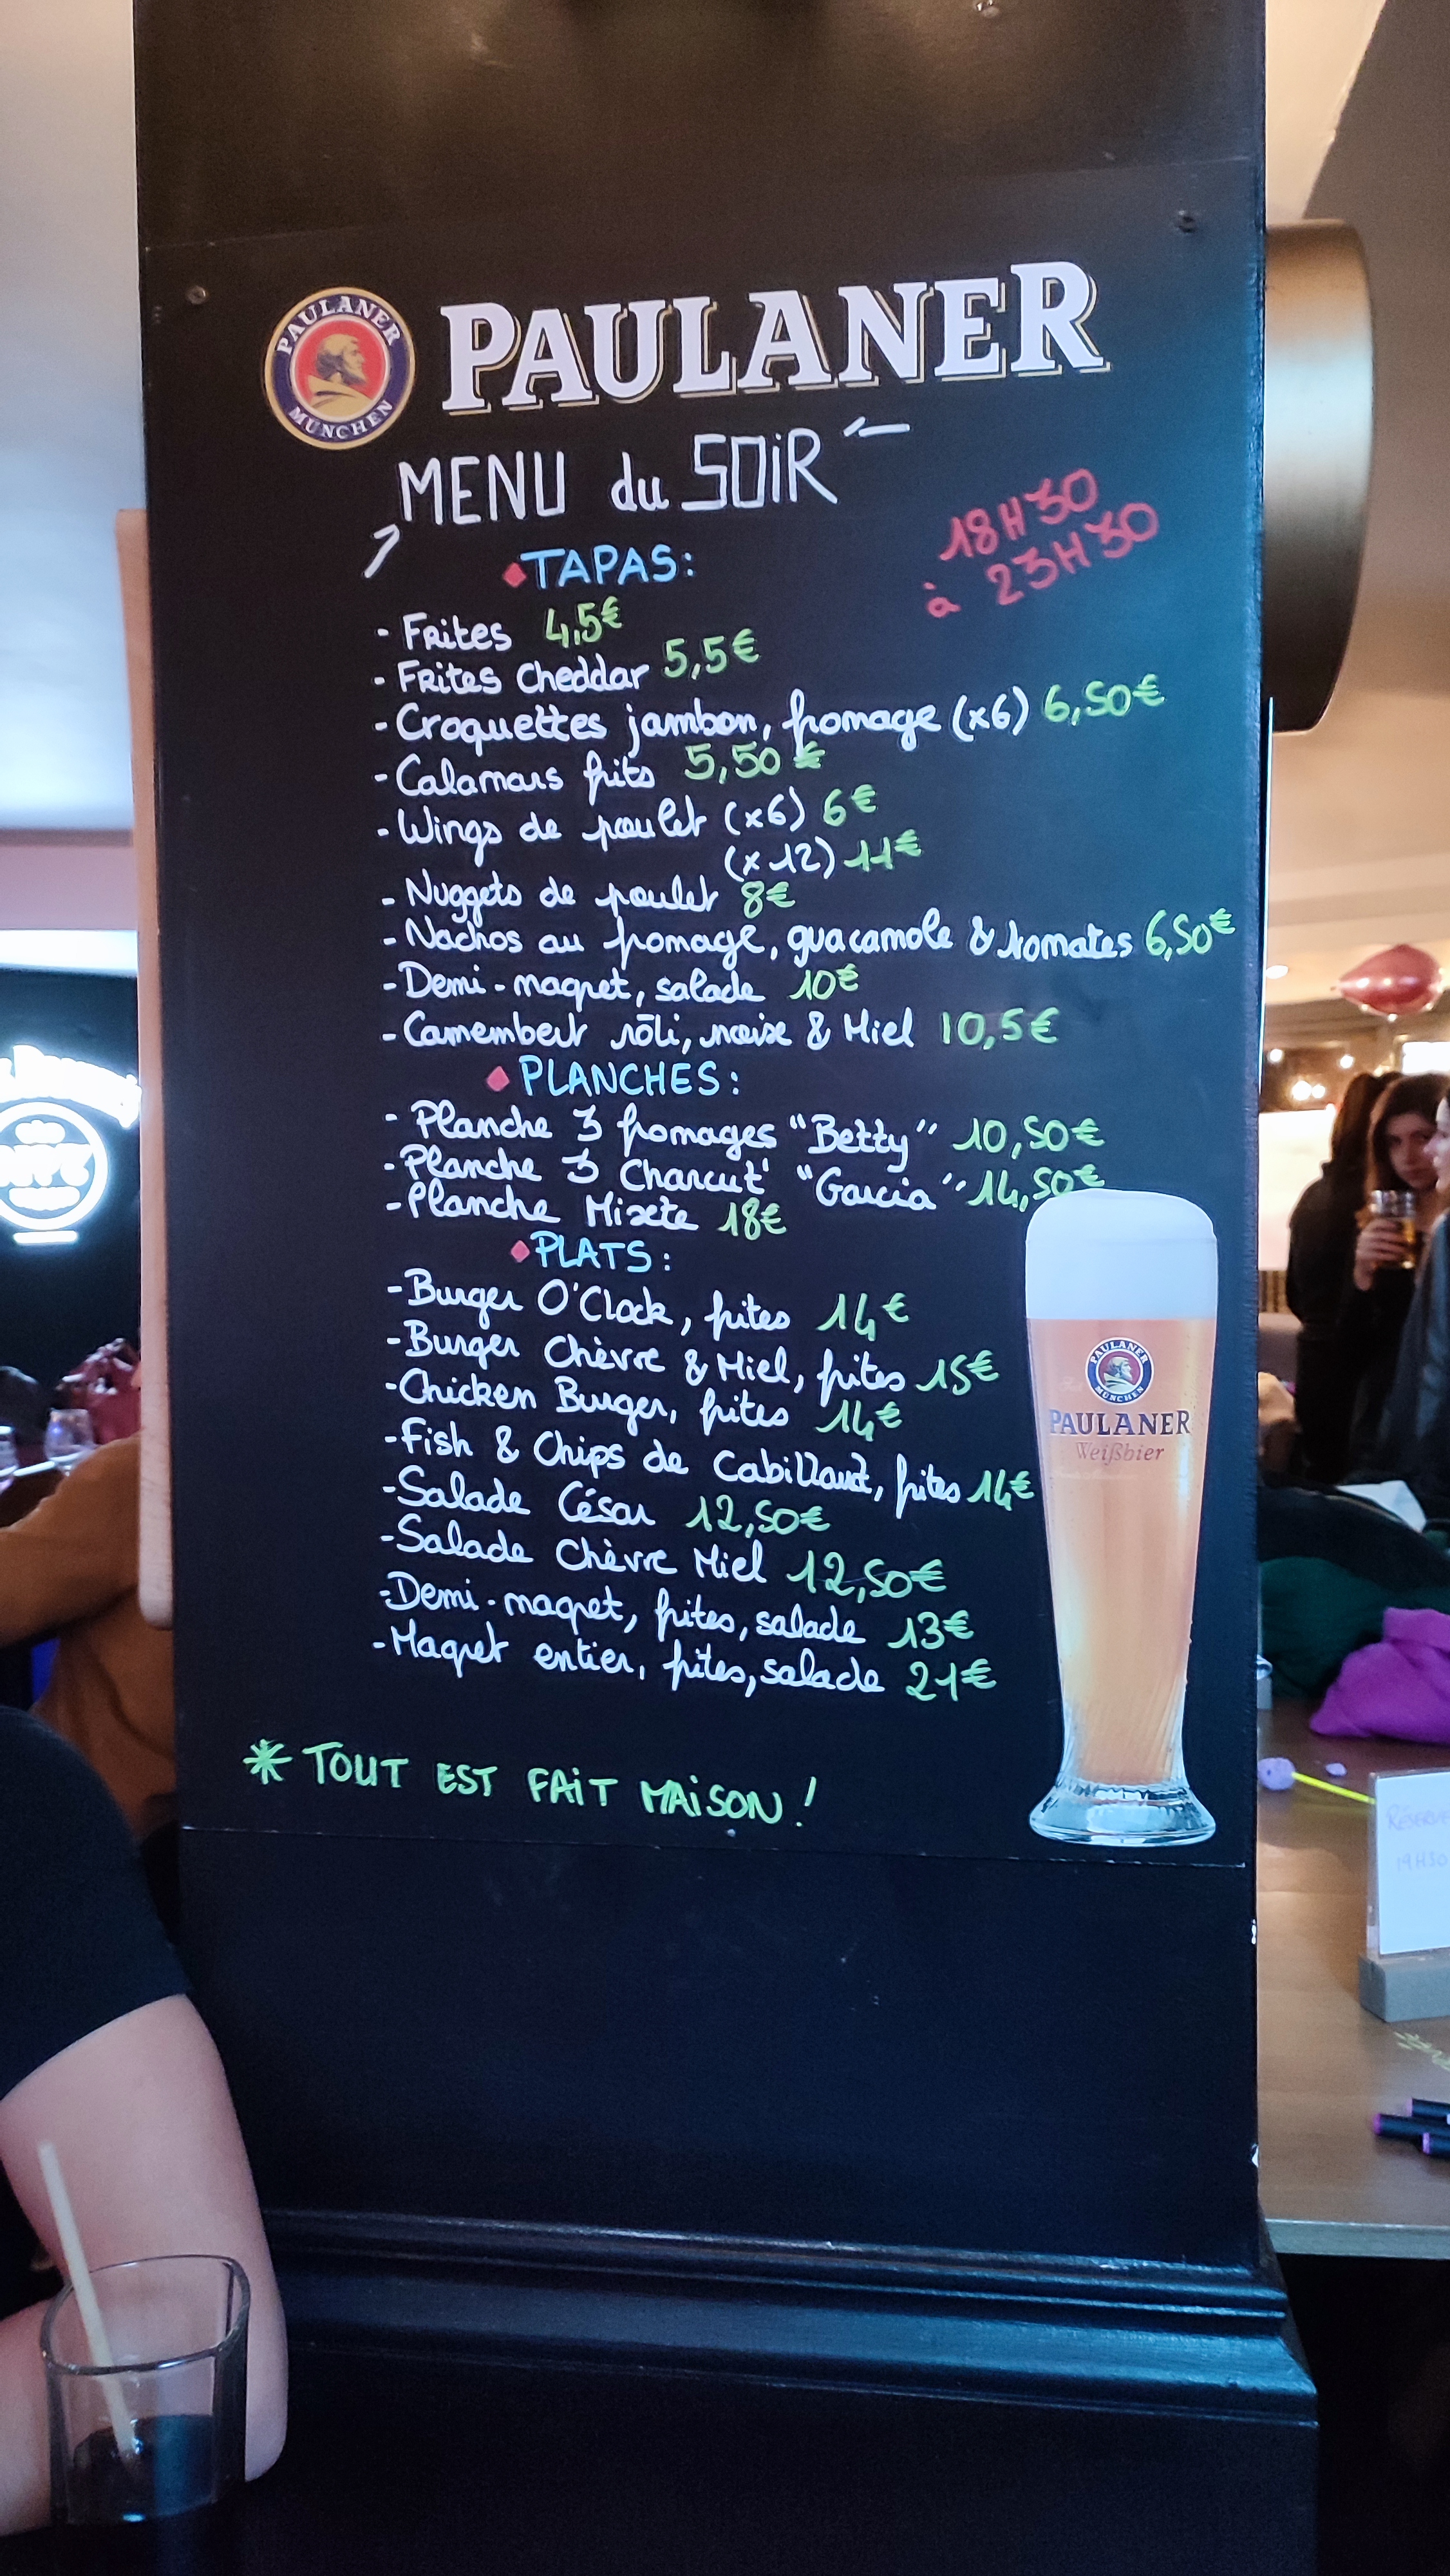 PAULANER
MÜNCHEN
PAULANER
MENU du SOIR
18H30
à 23H30
TAPAS:
- Frites 4,5€
- Frites Cheddar 5,5€
- Croquettes jambon, fromage (x6) 6,50€
- Calamars frits 5,50€
- Wings de poulet (x6) 6€
(x12) 11€
- Nuggets de poulet 8€
- Nachos au fromage, guacamole & tomates 6,50€
- Demi-magret, salade 10€
- Camembert rôti, noix & Miel 10,5€
PLANCHES:
- Planche 3 fromages "Betty" 10,50€
- Planche 3 Charcut' "Garcia" 14,50€
- Planche Mixte 18€
PLATS:
- Burger O'Clock, frites 14€
- Burger Chèvre & Miel, frites 15€
- Chicken Burger, frites 14€
- Fish & Chips de Cabillaud, frites 14€
- Salade César 12,50€
- Salade Chèvre Miel 12,50€
- Demi-magret, frites, salade 13€
- Magret entier, frites, salade 21€
* TOUT EST FAIT MAISON !
PAULANER
MÜNCHEN
PAULANER
Weißbier
19H30